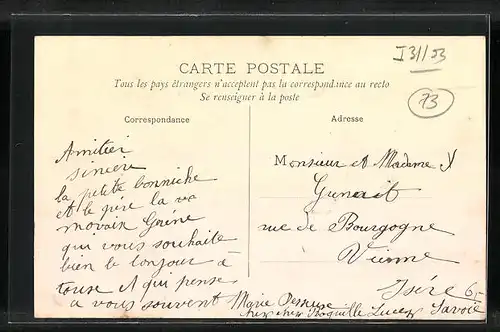 I 31/53
CARTE POSTALE
Tous les pays étrangers n'acceptent pas la correspondance au recto
Se renseigner à la poste
73
Correspondance
Adresse
Amitier
sincère
la petite bonniche
et le père la va
movain
qui vous souhaite
bien le bonjour à
touse et qui pense
a vous souvent
Monsieur et Madame
rue de Bourgogne
Vienne
Isère
6,-
Marie
Savoie